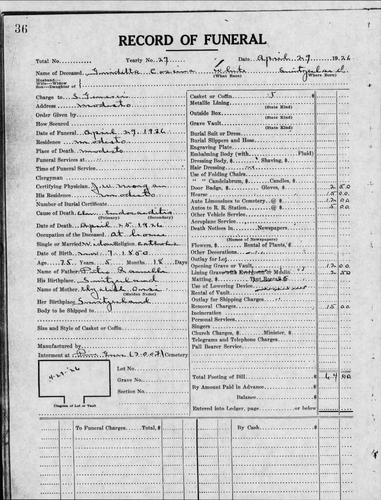 36
RECORD OF FUNERAL
Total No. Yearly No. 27 Date April 27 1926
Name of Deceased White
(What Born) (Where Born)
Husband—
Wife—Widow
Son—Daughter of
Charge to
Address modesto
Order Given by
How Secured
Date of Funeral April 27, 1926
Residence modesto
Place of Death modesto
Funeral Services at
Time of Funeral Service
Clergyman
Certifying Physician J. W. Morgan
His Residence modesto
Number of Burial Certificate
Cause of Death Endocarditis
(Primary) (Secondary)
Date of Death April 25, 1926
Occupation of the Deceased At home
Single or Married Widow Religion Catholic
Date of Birth 7 1850
Age 75 Years 5 Months 18 Days
Name of Father
His Birthplace Switzerland
Name of Mother
(Maiden Name)
Her Birthplace Switzerland
Body to be Shipped to
Size and Style of Casket or Coffin
Manufactured by
Interment at Cemetery
4-27-26
Lot No.
Grave No.
Section No.
Diagram of Lot or Vault
Casket or Coffin $
Metallic Lining
(State Kind)
Outside Box
(State Kind)
Grave Vault
(State Kind)
Burial Suit or Dress
Burial Slippers and Hose
Engraving Plate
Embalming Body (with Fluid)
Dressing Body, $ Shaving, $
Hair Dressing
Use of Folding Chairs
" " Candelabrum, $ Candles, $
Door Badge, $ Gloves, $ 2 50
Hearse 15 00
Auto Limousines to Cemetery @ $ 12 00
Autos to R. R. Station @ $
Other Vehicle Service
Aeroplane Service
Death Notices in Newspapers
(Names of Newspapers)
Flowers, $ Rental of Plants, $
Other Decorations
Outlay for Lot
Opening Grave or Vault 12 00
Lining Grave 2 50
Matting
Use of Lowering Device
Rental of Vault
Outlay for Shipping Charges
Removal Charges 15 00
Incineration
Personal Services
Singers
Church Charges, $ Minister, $
Telegrams and Telephone Charges
Pall Bearer Service
Total Footing of Bill $
By Amount Paid in Advance
Balance $
Entered into Ledger, page or below
To Funeral Charges, Total, $ By Cash $